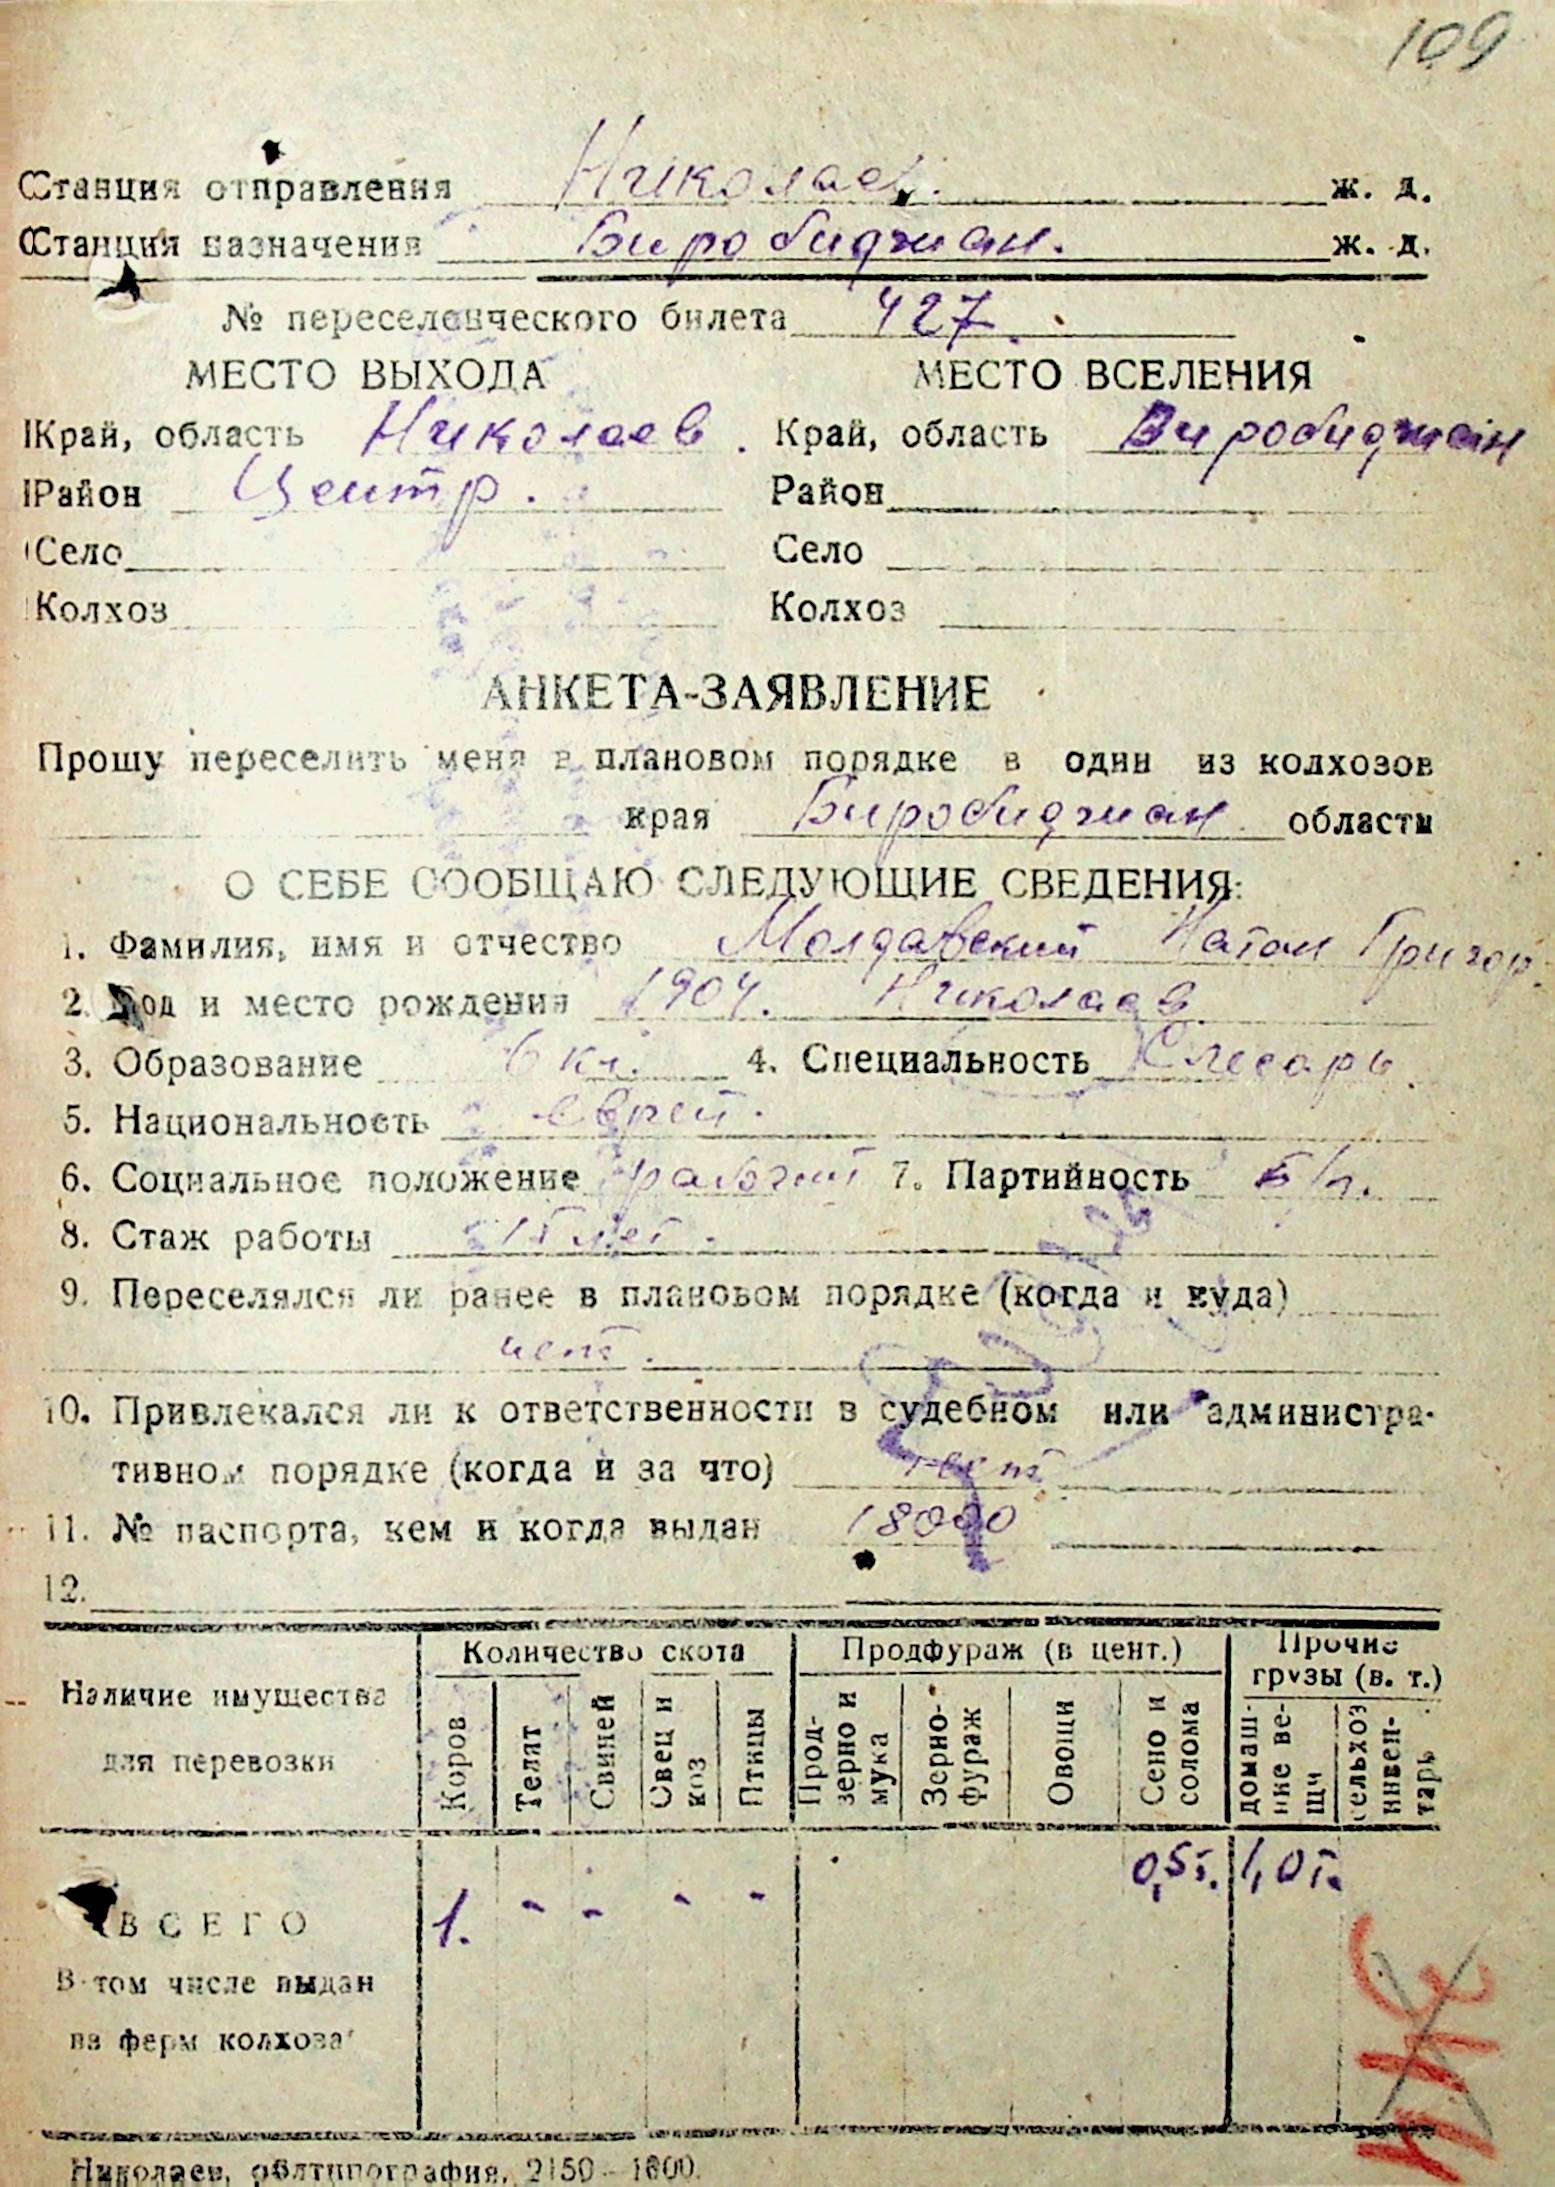 109
Станция отправления Николаев. ж. д.
Станция назначения Биробиджан. ж. д.
№ переселенческого билета 427.
МЕСТО ВЫХОДА МЕСТО ВСЕЛЕНИЯ
Край, область Николаев. Край, область Биробиджан
Район Центр. Район
Село Село
Колхоз Колхоз
АНКЕТА-ЗАЯВЛЕНИЕ
Прошу переселить меня в плановом порядке в один из колхозов
края Биробиджан области
О СЕБЕ СООБЩАЮ СЛЕДУЮЩИЕ СВЕДЕНИЯ:
1. Фамилия, имя и отчество Молдавский Натан Григор.
2. Год и место рождения 1904. Николаев
3. Образование 6 кл. 4. Специальность Слесарь.
5. Национальность еврей.
6. Социальное положение рабочий 7. Партийность б/п.
8. Стаж работы 15 лет.
9. Переселялся ли ранее в плановом порядке (когда и куда)
нет.
10. Привлекался ли к ответственности в судебном или администра-
тивном порядке (когда и за что) нет
11. № паспорта, кем и когда выдан
12.
Наличие имущества для перевозки
Количество скота Продфураж (в цент.) Прочие грузы (в. т.)
Коров Телят Свиней Овец и коз Птицы Прод-зерно и мука Зерно-фураж Овощи Сено и солома домаш-ние ве-щи сельхоз инвен-тарь
ВСЕГО 1. - - - - 0,5т. 1,0т.
В том числе выдан
из ферм колхоза
Николаев, облтипография, 2150—1600.